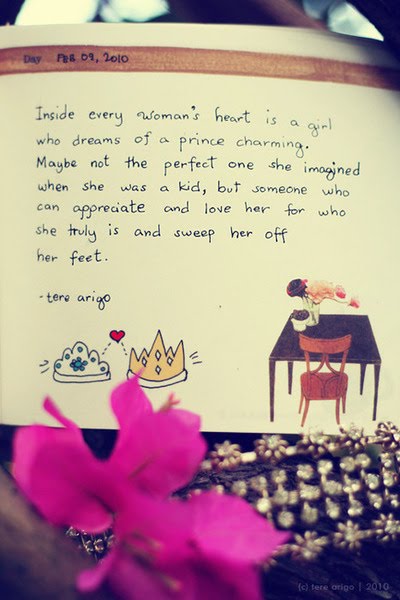 Day FEB 09, 2010
Inside every woman's heart is a girl
who dreams of a prince charming.
Maybe not the perfect one she imagined
when she was a kid, but someone who
can appreciate and love her for who
she truly is and sweep her off
her feet.
-tere arigo
(c) tere arigo | 2010